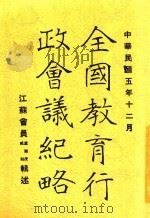 中華民國五年十二月
全國教育行
政會議紀略
江蘇會員 輯述